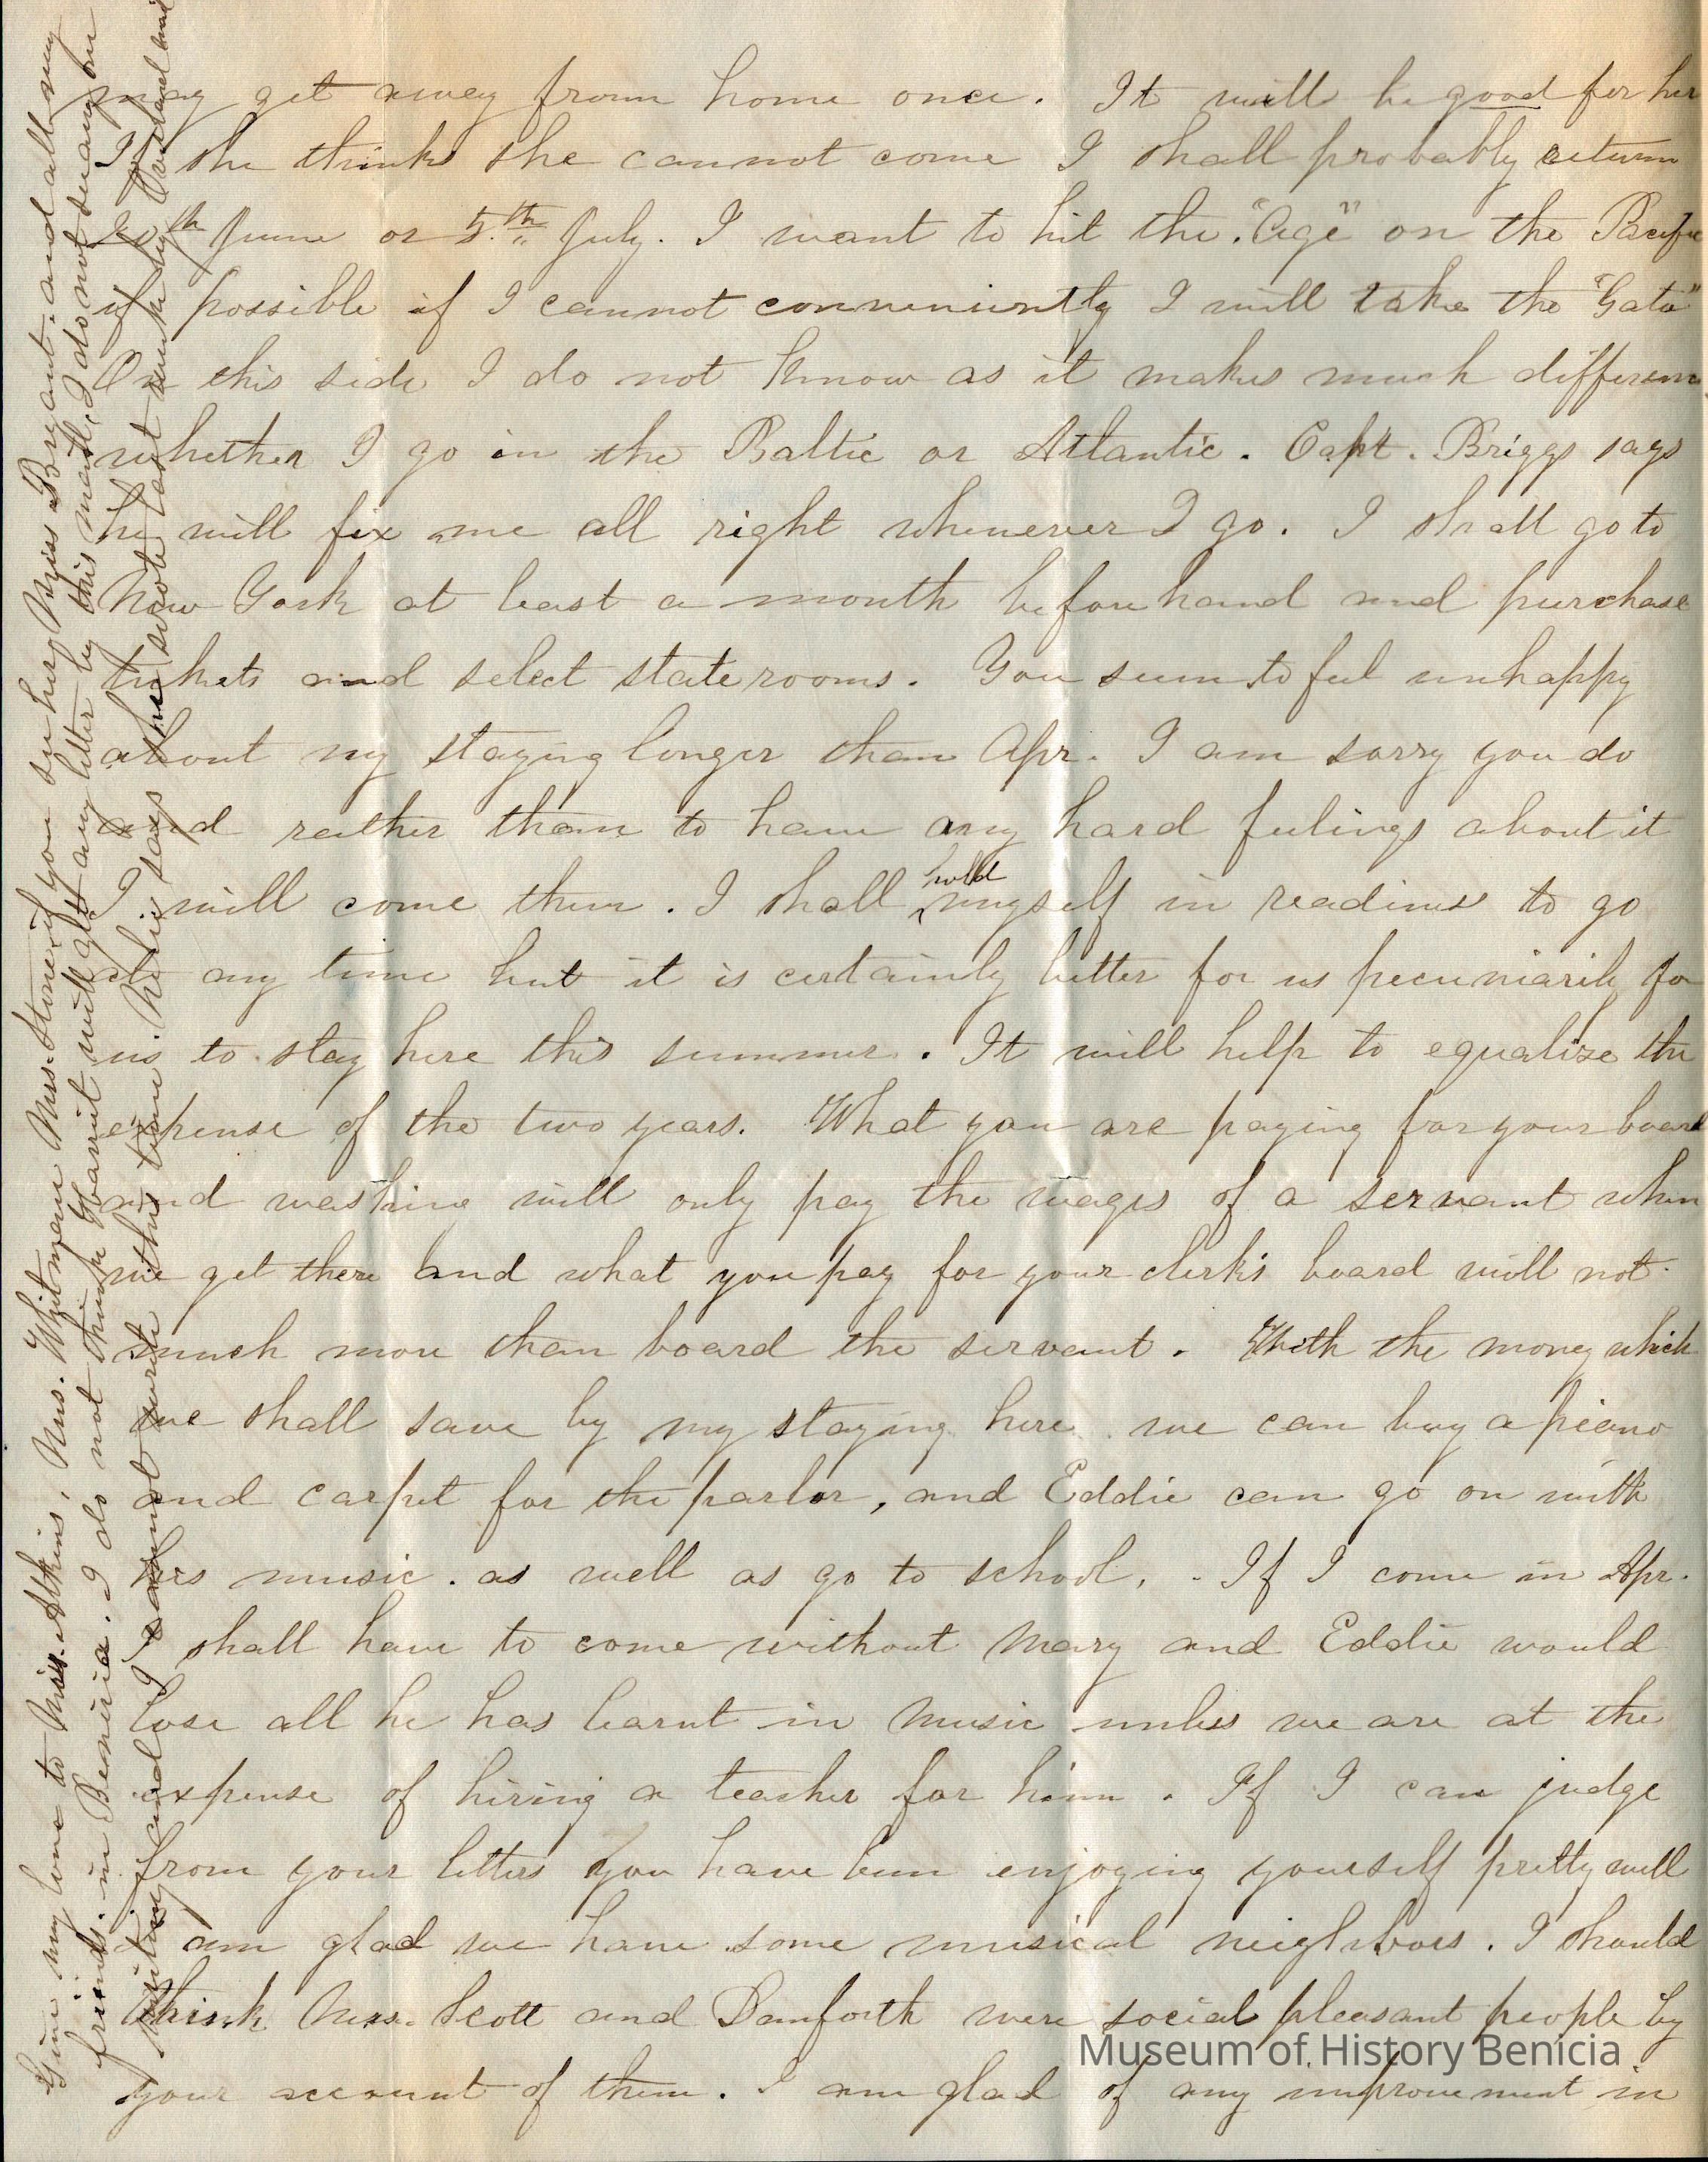 may get away from home once. It will be good for her
If she thinks she cannot come I shall probably return
20th June or 5.th July. I want to hit the "Age" on the Pacific
if possible if I cannot conveniently I will take the "Gate"
On this side I do not know as it makes much differenc
whether I go in the Baltic or Atlantic. Capt. Briggs says
he will fix me all right whenever I go. I shall go to
New York at least a month beforehand and purchase
tickets and select staterooms. You seem to feel unhappy
about my staying longer than Apr. I am sorry you do
and rather than to have any hard feelings about it
I will come then. I shall hold myself in readiness to go
at any time but it is certainly better for us pecuniarily for
us to stay here this summer. It will help to equalize the
expense of the two years. What you are paying for your board
and washing will only pay the wages of a servant when
we get there and what you pay for your clerks board will not
much more than board the servant. With the money which
we shall save by my staying here we can buy a piano
and carpet for the parlor, and Eddie can go on with
his music. as well as go to school. If I come in Apr.
I shall have to come without Mary and Eddie would
lose all he has learnt in music unless we are at the
expense of hiring a teacher for him. If I can judge
from your letters you have been enjoying yourself pretty well
I am glad we have some musical neighbors. I should
think Mrs. Scott and Bamforth were social pleasant people by
your account of them. I am glad of any improvement in
Give my love to Miss. Atkins, Mrs. Whitman Mrs. Stone if you see her, Miss Bryant, and all my
friends in Benicia. I do not think Harriet will get any letter by this mail, I do not see any one
writing and I cannot write this time. Nelie says she wrote last week by Overland mail
Museum of History Benicia